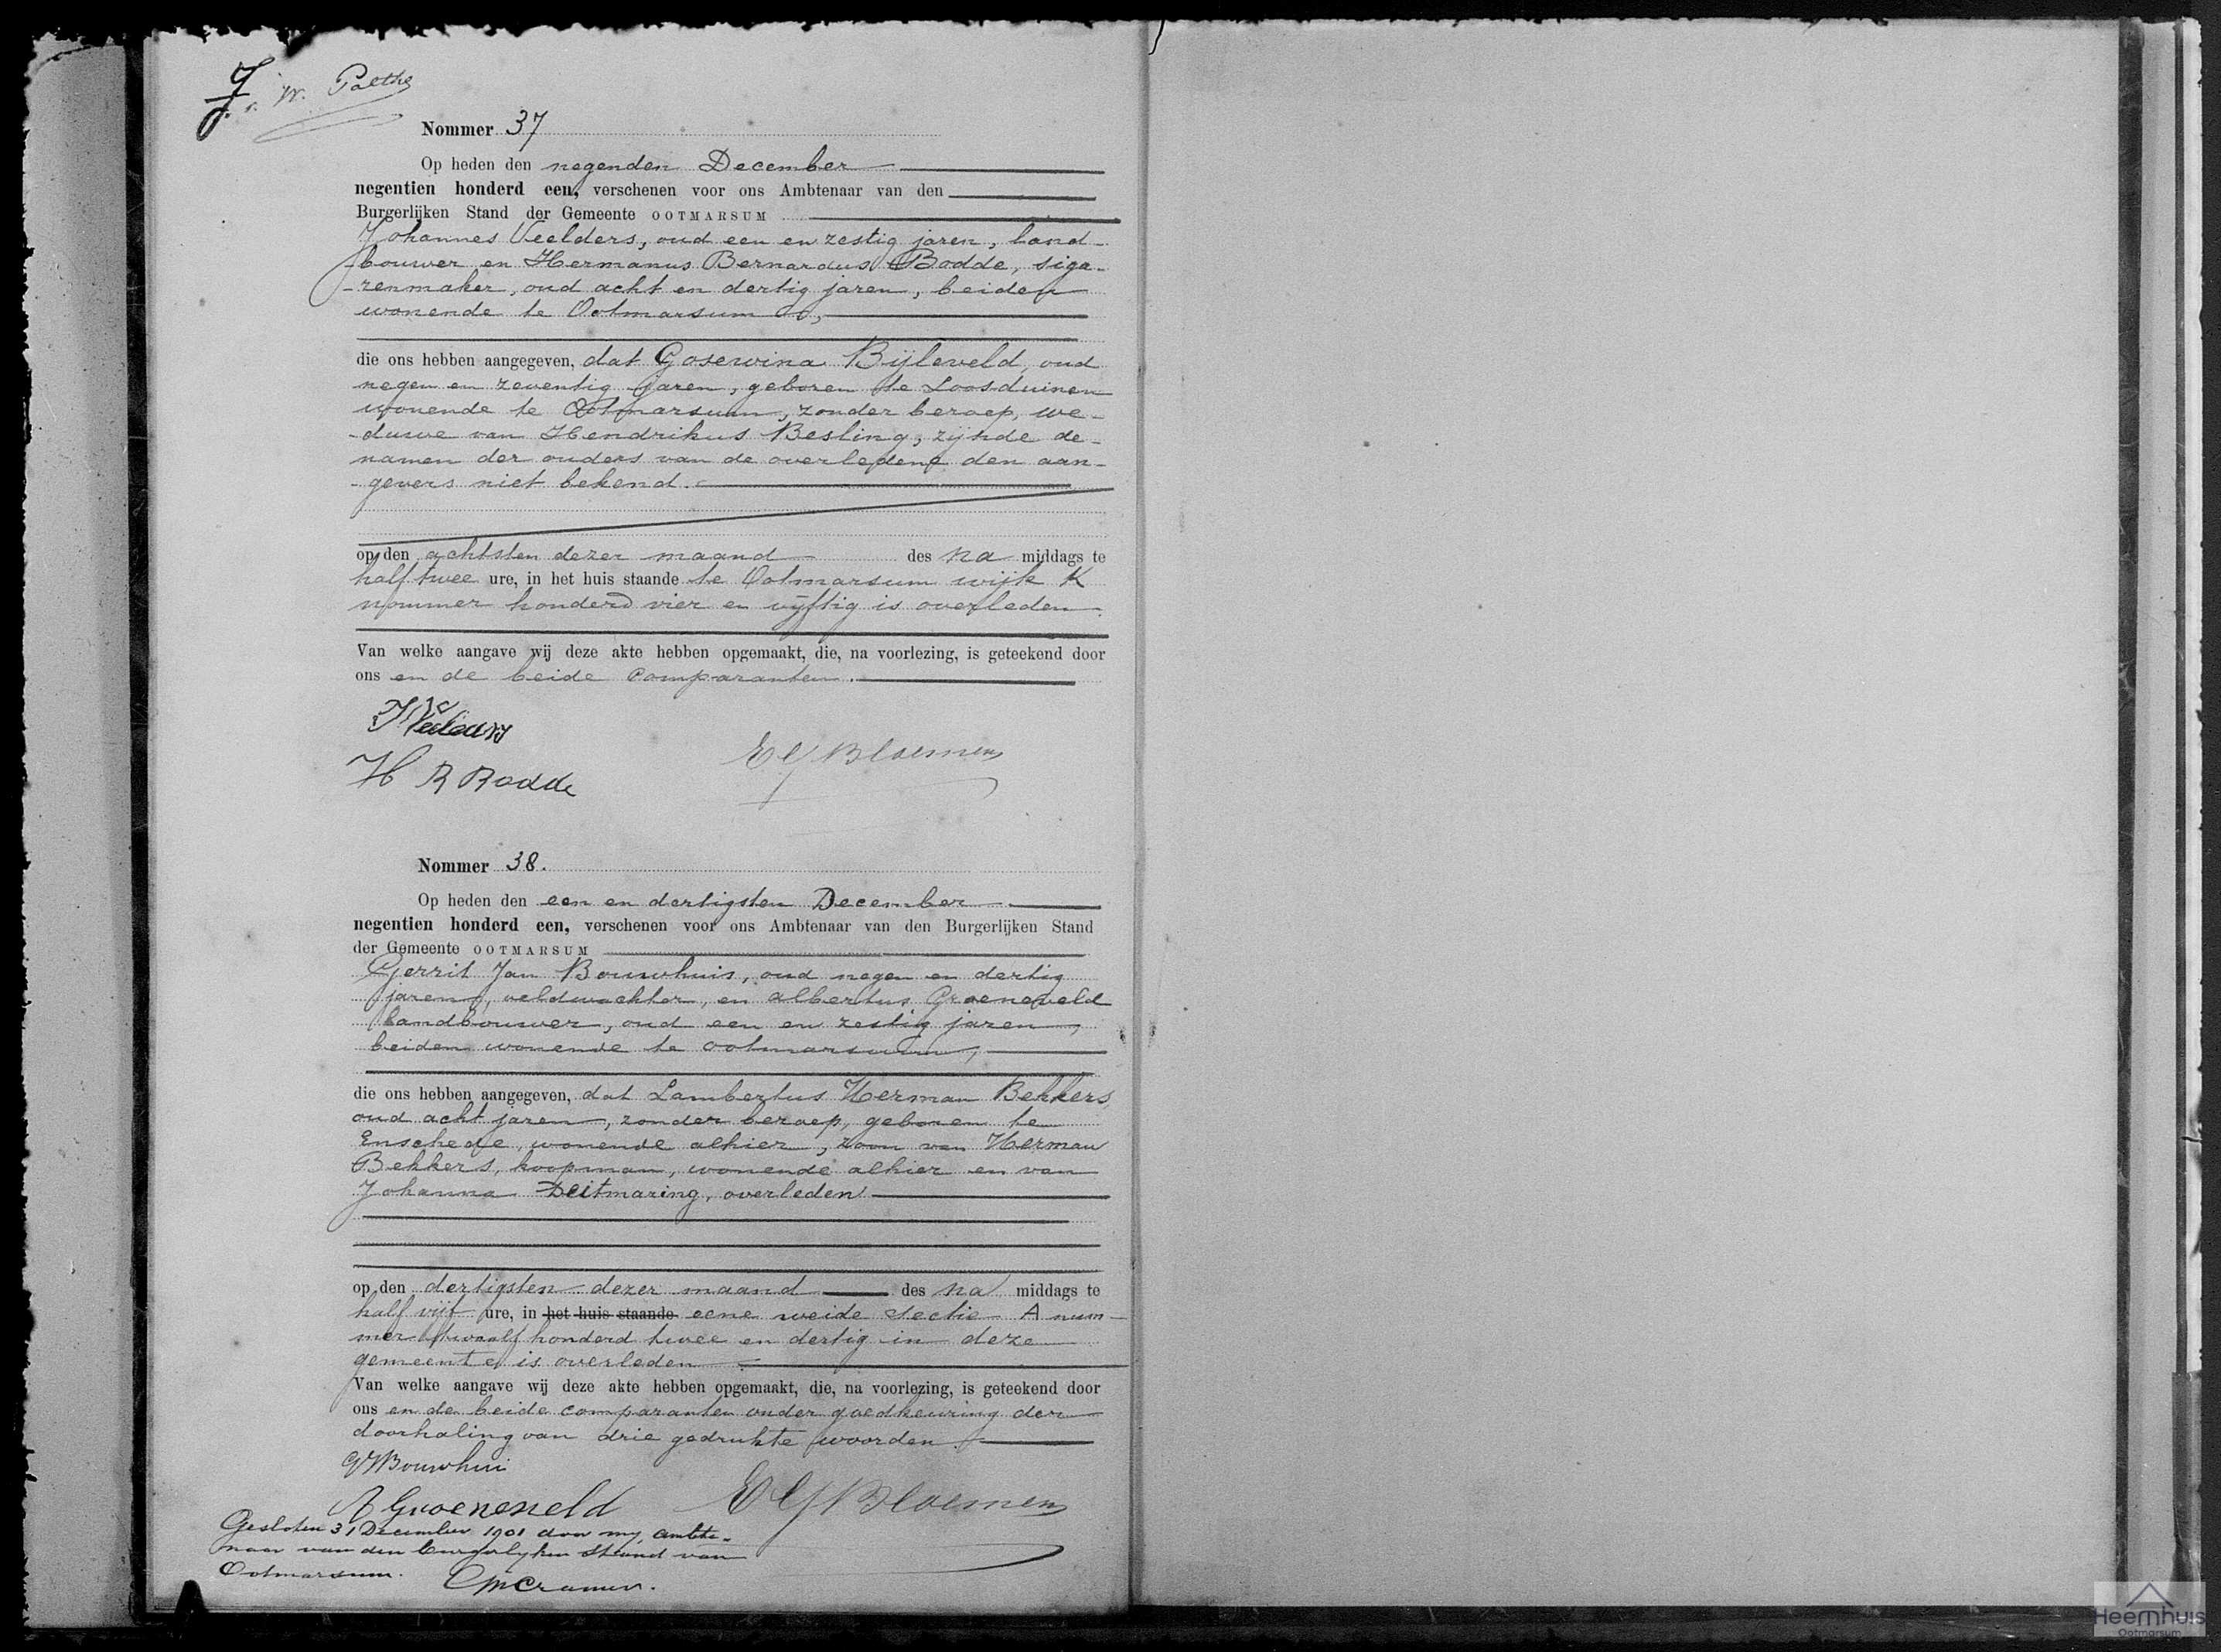 7
W. Palthe
Nommer 37
Op heden den negenden December
negentien honderd een, verschenen voor ons Ambtenaar van den
Burgerlijken Stand der Gemeente OOTMARSUM
Johannes Veelders, oud een en zestig jaren, land-
bouwer en Hermanus Bernardus Bodde, siga-
-renmaker, oud acht en dertig jaren, beiden
wonende te Ootmarsum
die ons hebben aangegeven, dat Gosewina Bijleveld, oud
negen en zeventig jaren, geboren te Loosduinen
wonende te Ootmarsum, zonder beroep, we-
-duwe van Hendrikus Besling, zijnde de
namen der ouders van de overledene den aan-
-gevers niet bekend.
op den achtsten dezer maand des na middags te
half twee ure, in het huis staande te Ootmarsum wijk K
nommer honderd vier en vijftig is overleden
Van welke aangave wij deze akte hebben opgemaakt, die, na voorlezing, is geteekend door
ons en de beide Comparanten.
H B Bodde
Bloemen
Nommer 38.
Op heden den een en dertigsten December
negentien honderd een, verschenen voor ons Ambtenaar van den Burgerlijken Stand
der Gemeente OOTMARSUM
Gerrit Jan Bouwhuis, oud negen en dertig
jaren, veldwachter, en Albertus Groeneveld
landbouwer, oud een en zestig jaren,
beiden wonende te Ootmarsum,
die ons hebben aangegeven, dat Lambertus Herman Bekkers,
oud acht jaren, zonder beroep, geboren te
Enschede, wonende alhier, zoon van Herman
Bekkers, koopman, wonende alhier en van
Johanna Deitmaring, overleden
op den dertigsten dezer maand des na middags te
half vijf ure, in het huis staande eene weide sectie A num-
mer twaalf honderd twee en dertig in deze
gemeente is overleden
Van welke aangave wij deze akte hebben opgemaakt, die, na voorlezing, is geteekend door
ons en de beide comparanten onder goedkeuring der
doorhaling van drie gedrukte woorden.
GJ Bouwhuis
A Groeneveld
Bloemen
Gesloten 31 December 1901 door mij ambte-
naar van den burgerlyken stand van
Ootmarsum.
Cramer.
Heernhuis
Ootmarsum